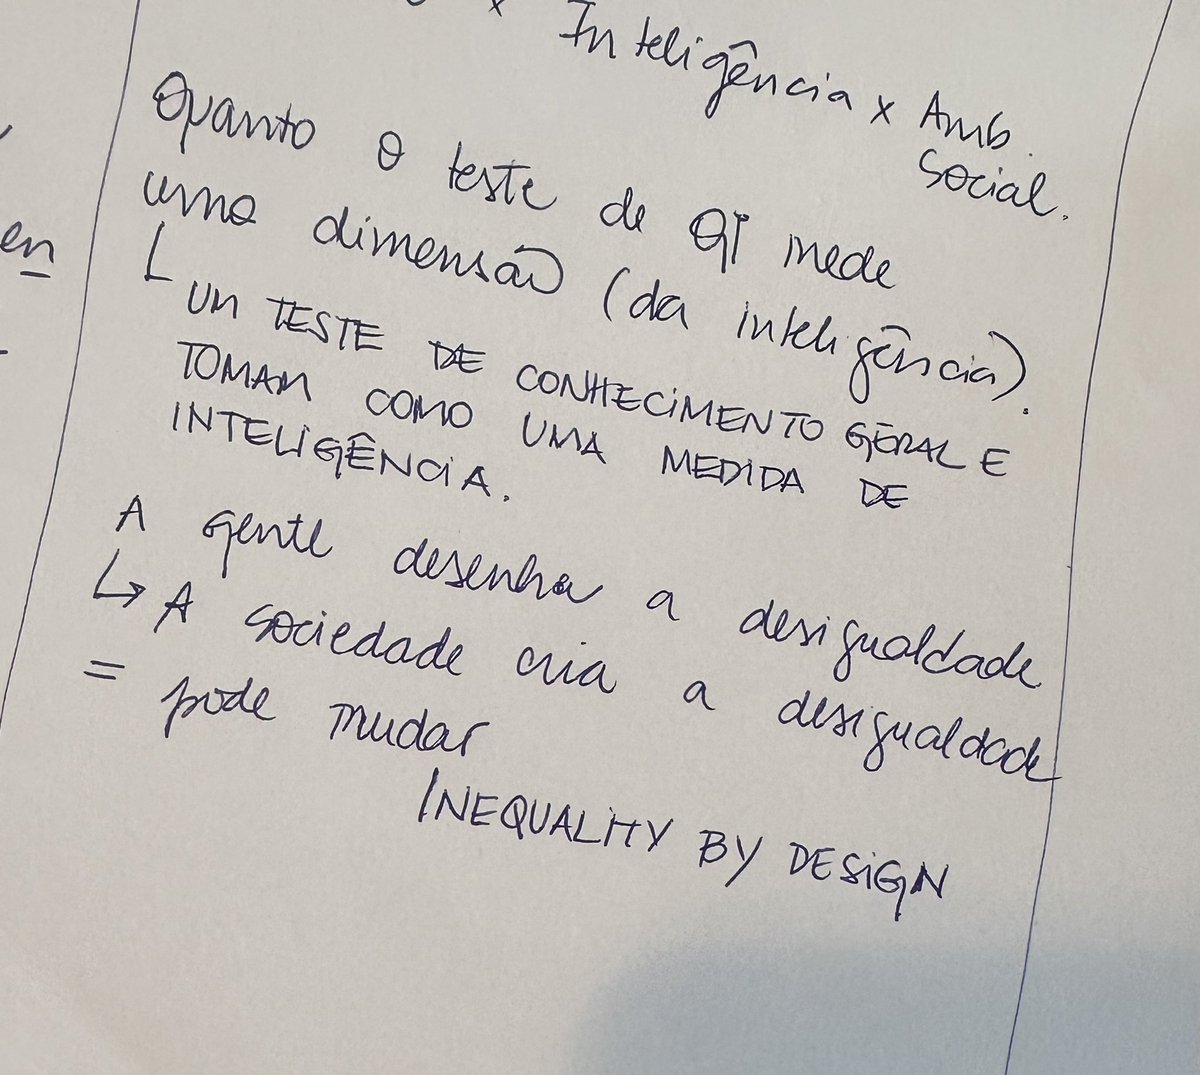 x Inteligência x Amb.
Social.
Quanto o teste de QI mede
uma dimensão (da inteligência).
UM TESTE DE CONHECIMENTO GERAL E
TOMAM COMO UMA MEDIDA DE
INTELIGÊNCIA.
A gente desenha a desigualdade
↳ A sociedade cria a desigualdade
= pode mudar
INEQUALITY BY DESIGN
en